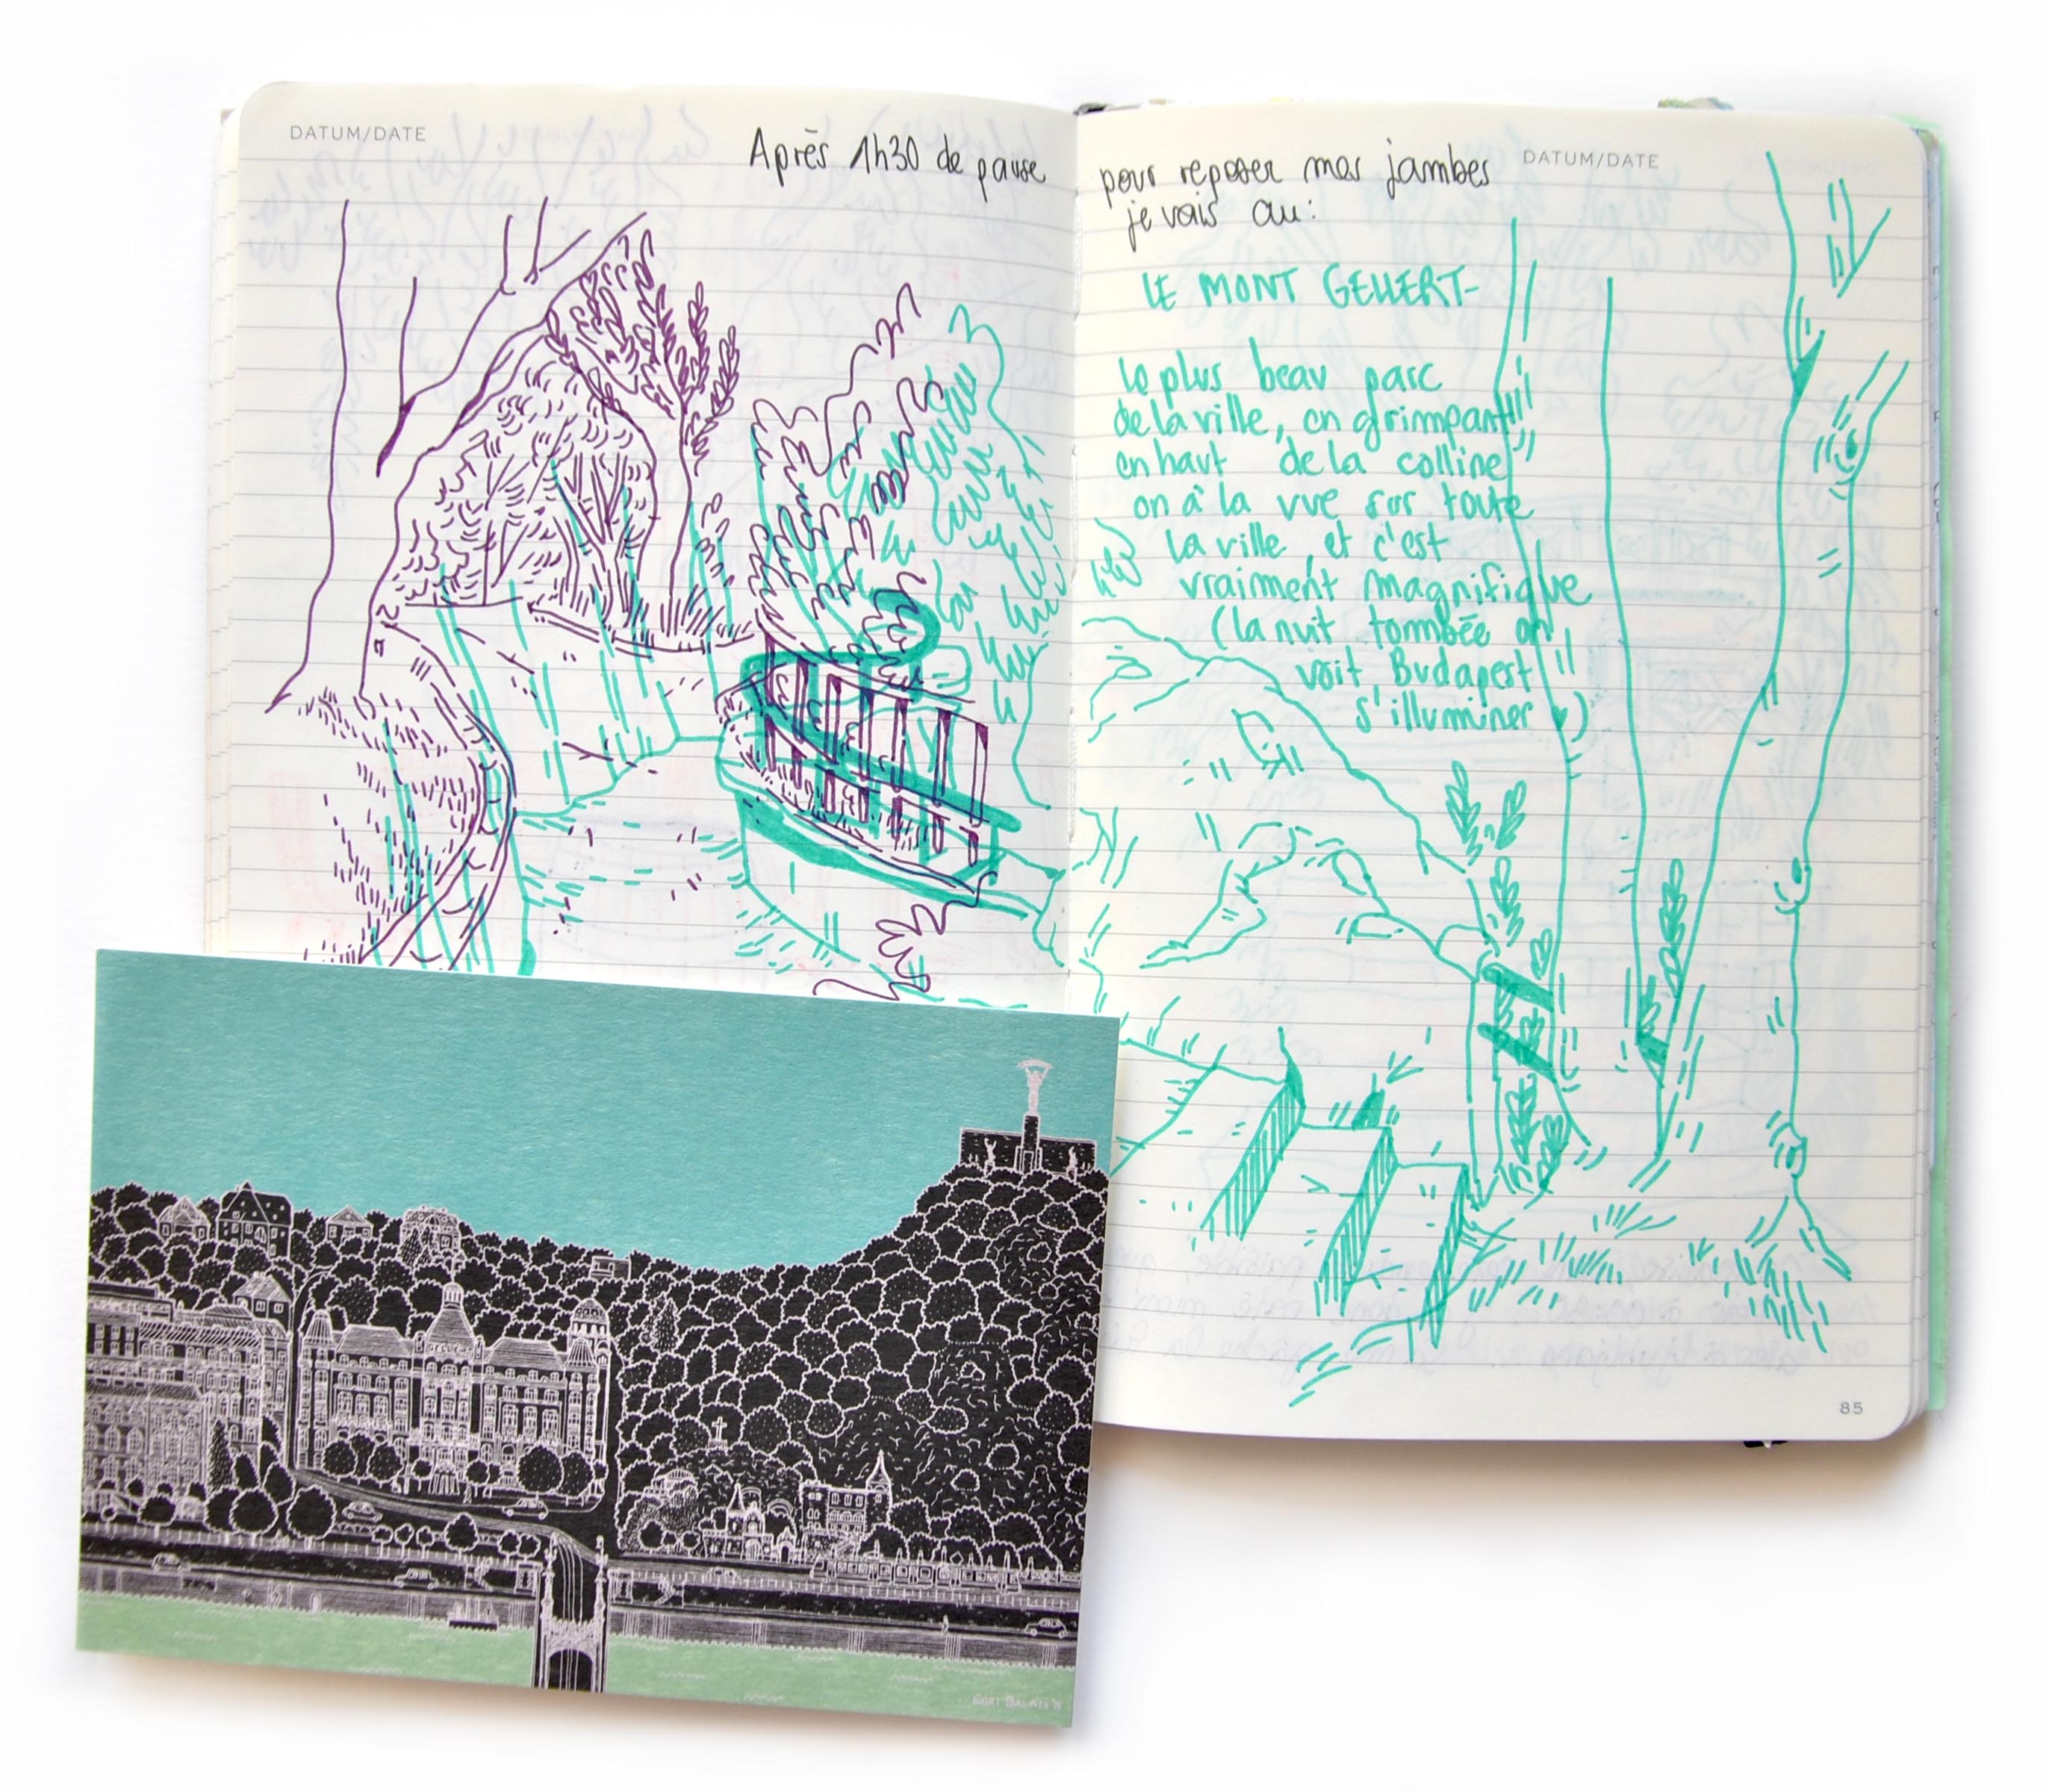 DATUM/DATE
Après 1h30 de pause
pour reposer mes jambes
DATUM/DATE
je vais au:
LE MONT GELLERT-
le plus beau parc
de la ville, en grimpant
en haut de la colline
on à la vue sur toute
la ville, et c'est
vraiment magnifique
(la nuit tombée on
voit Budapest
s'illuminer)
85